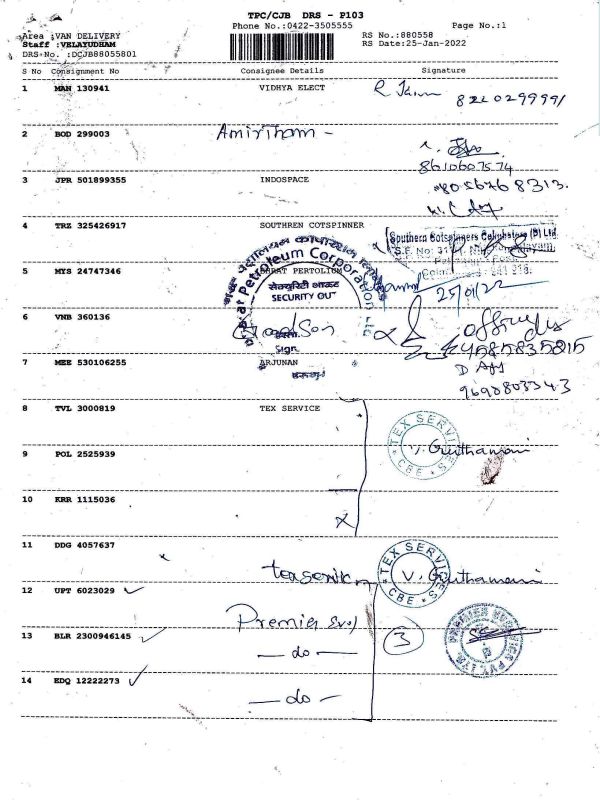 TPC/CJB DRS - P103
Phone No.:0422-3505555 Page No.:1
Area :VAN DELIVERY RS No.:880558
Staff :VELAYUDHAM RS Date:25-Jan-2022
DRS-No. :DCJB88055801
S No Consignment No Consignee Details Signature
1 MAN 130941 VIDHYA ELECT
2 BOD 299003 Amiritham -
8610607574
3 JPR 501899355 INDOSPACE 8056768313.
4 TRZ 325426917 SOUTHREN COTSPINNER
Southern Cotspinners Coimbatore (P) Ltd
5 MYS 24747346 BARAT PERTOLIUM
Bharat Petroleum Corporation Ltd
सेक्यूरिटी आऊट
SECURITY OUT
Sign.
25/01/22
6 VNB 360136
7 MEE 530106255 ARJUNAN
8 TVL 3000819 TEX SERVICE
TEX SERVICE CBE
V. Gruthamani
9 POL 2525939
10 KRR 1115036
11 DDG 4057637
TEX SERVICE CBE
V. Gruthamani
12 UPT 6023029
Premier
13 BLR 2300946145
3
— do —
14 EDQ 12222273
— do —